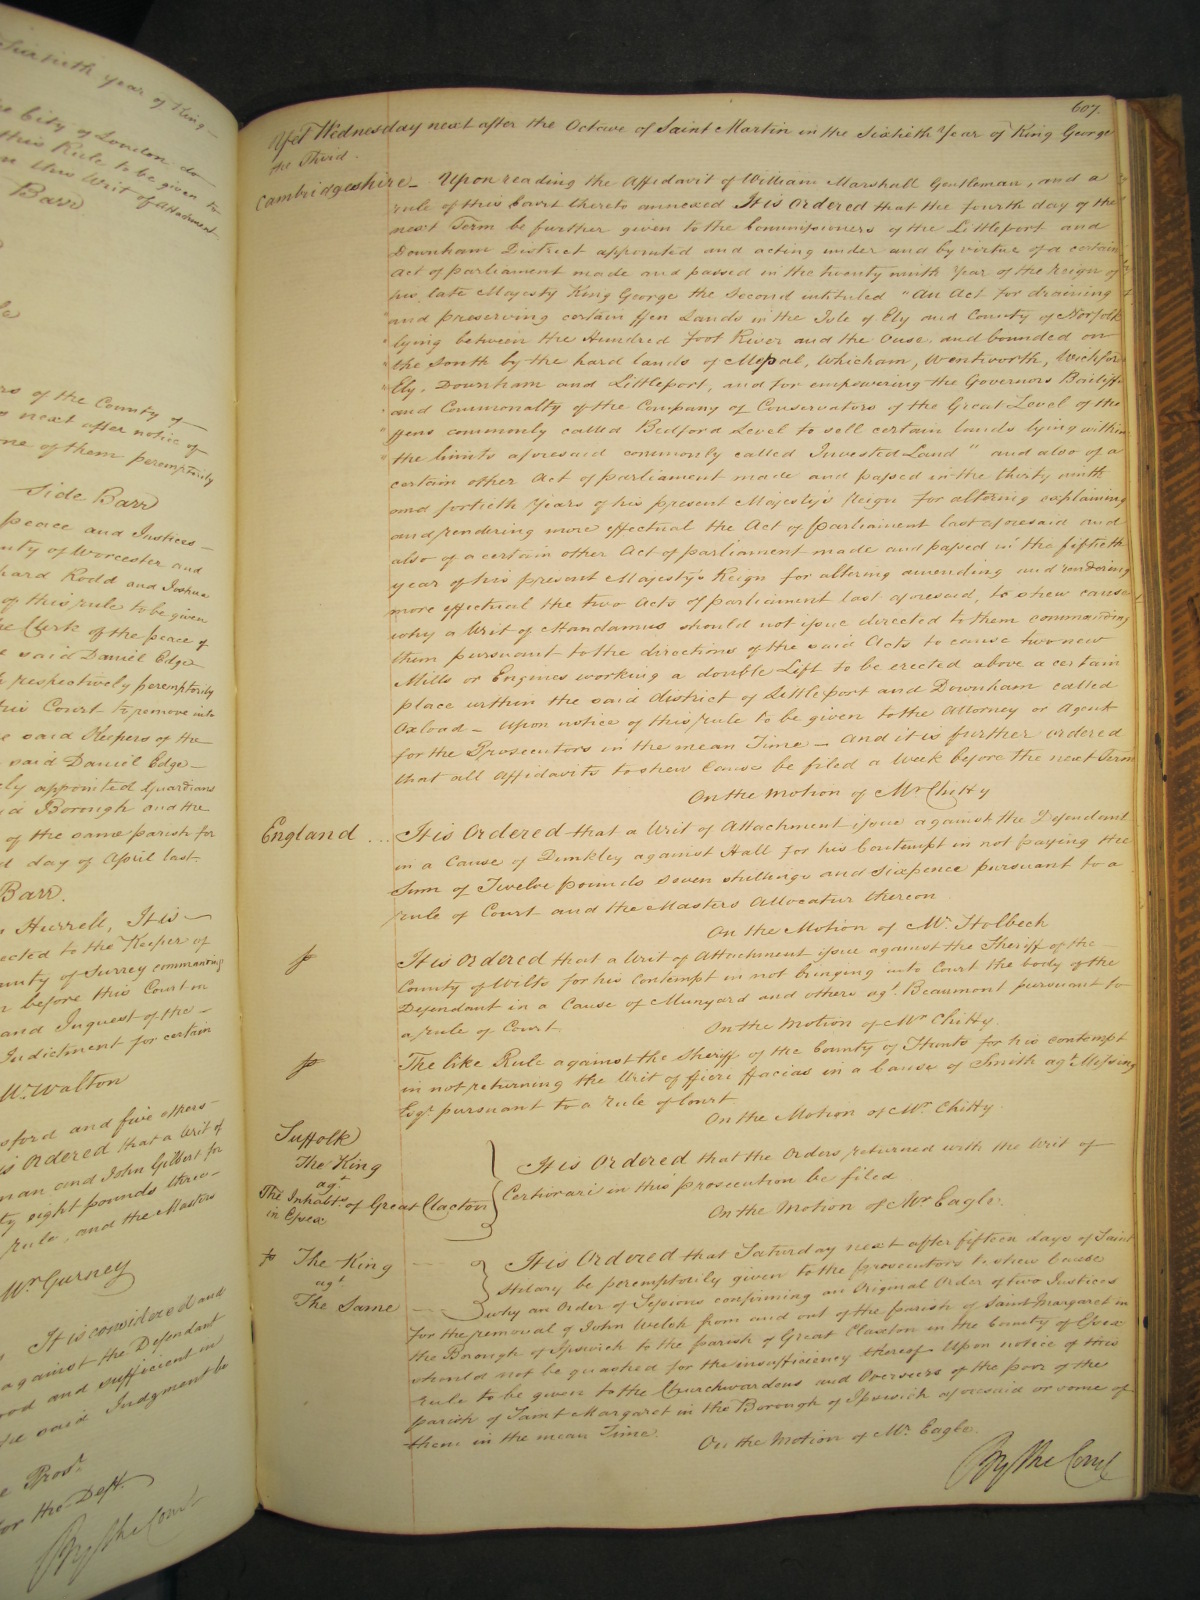 sixtieth year of King
he City of London do
this Rule to be given to
n this Writ of Attachment
Barr
rs of the County of
next after notice of
one of them peremptorily
Side Barr
peace and Justices
unty of Worcester and
hard Rodd and Joshua
of this rule to be given
he Clerk of the peace of
e said Daniel Edge
respectively peremptorily
this Court to remove into
e said Keepers of the
said Daniel Edge
ly appointed Guardians
id Borough and the
of the same parish for
d day of April last
Barr.
Hurrell, It is
ected to the Keeper of
unty of Surrey commanding
n before this Court on
and Inquest of the
Indictment for certain
Mr. Walton
sford and five others
is Ordered that a Writ of
man and John Gilbert for
ty eight pounds three
rule, and the Masters
Mr Gurney
It is considered and
against the Defendant
ood and sufficient in
the said Judgment be
e Prosr.
for the Deft.
By the Court
607.
Yet Wednesday next after the Octave of Saint Martin in the Sixtieth Year of King George
the Third.
Cambridgeshire - Upon reading the Affidavit of William Marshall Gentleman, and a
rule of this Court thereto annexed It is Ordered that the fourth day of the
next Term be further given to the Commissioners of the Littleport and
Downham District appointed and acting under and by virtue of a certain
Act of parliament made and passed in the twenty ninth Year of the reign of
his late Majesty King George the Second intituled "An Act for draining
and preserving certain ffen Lands in the Isle of Ely and County of Norfolk
lying between the Hundred foot River and the Ouse, and bounded on
the South by the hard lands of Mepal, Whicham, Wentworth, Wichford
Ely, Downham and Littleport, and for empowering the Governors Bailiffs
and Commonalty of the Company of Conservators of the Great Level of the
ffens commonly called Bedford Level to sell certain lands lying within
the limits aforesaid commonly called Invested Land" and also of a
certain other Act of parliament made and passed in the thirty ninth
and fortieth Years of his present Majesty's Reign for altering explaining
and rendering more effectual the Act of parliament last aforesaid and
also of a certain other Act of parliament made and passed in the fiftieth
year of his present Majesty's Reign for altering amending and rendering
more effectual the two Acts of parliament last aforesaid, to shew cause
why a Writ of Mandamus should not issue directed to them commanding
them pursuant to the directions of the said Acts to cause two new
Mills or Engines working a double Lift to be erected above a certain
place within the said district of Littleport and Downham called
Oxload - Upon notice of this rule to be given to the Attorney or Agent
for the Prosecutors in the mean Time - And it is further ordered
that all Affidavits to shew Cause be filed a Week before the next Term
On the Motion of Mr Chitty
England ... It is Ordered that a Writ of Attachment issue against the Defendant
in a Cause of Dunkley against Hall for his Contempt in not paying the
Sum of Twelve pounds seven shillings and sixpence pursuant to a
rule of Court and the Masters Allocatur thereon
On the Motion of Mr. Holbech
It is Ordered that a Writ of Attachment issue against the Sheriff of the
County of Wilts for his Contempt in not bringing into Court the body of the
Defendant in a Cause of Munyard and others agt. Beaumont pursuant to
a rule of Court
On the Motion of Mr Chitty.
The like Rule against the Sheriff of the County of Hunts for his contempt
in not returning the Writ of ffieri ffacias in a Cause of Smith agt. Messing
Esqr. pursuant to a rule of Court
On the Motion of Mr. Chitty.
Suffolk
The King
agt.
The Inhabts. of Great Clacton
in Essex
It is Ordered that the Orders returned with the Writ of
Certiorari in this prosecution be filed
On the Motion of Mr Eagle.
The King
agt.
The Same
It is Ordered that Saturday next after fifteen days of Saint
Hilary be peremptorily given to the prosecutors to shew Cause
why an Order of Sessions confirming an Original Order of two Justices
for the removal of John Welch from and out of the parish of Saint Margaret in
the Borough of Ipswich to the parish of Great Clacton in the County of Essex
should not be quashed for the insufficiency thereof Upon notice of this
rule to be given to the Churchwardens and Overseers of the poor of the
parish of Saint Margaret in the Borough of Ipswich aforesaid or some of
them in the mean Time.
On the Motion of Mr. Eagle.
By the Court